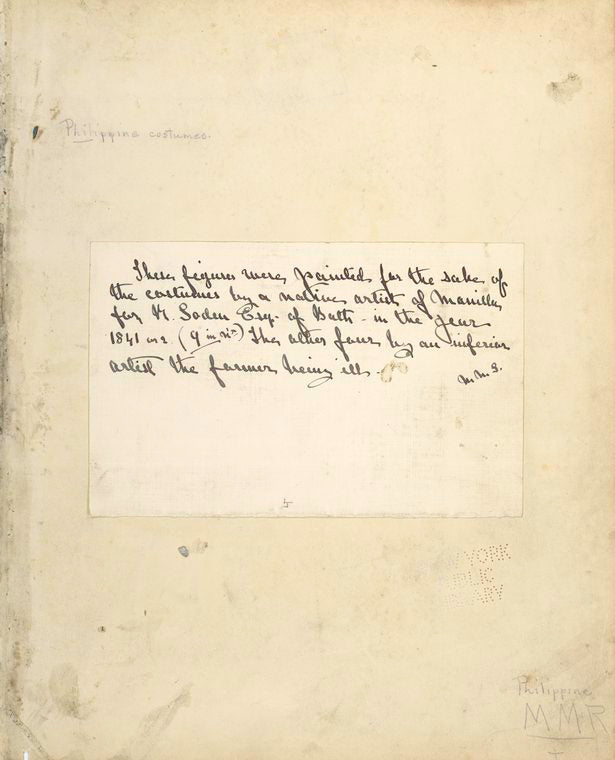 Philippine costumes.
These figures were painted for the sake of
the costumes by a native artist of Manilla
for H. Soden Esqr. of Bath - in the year
1841 or 2. (9 in No.) The other four by an inferior
artist the former being ill.
M.M.S.
YORK
PUBLIC
Philippine
MMR